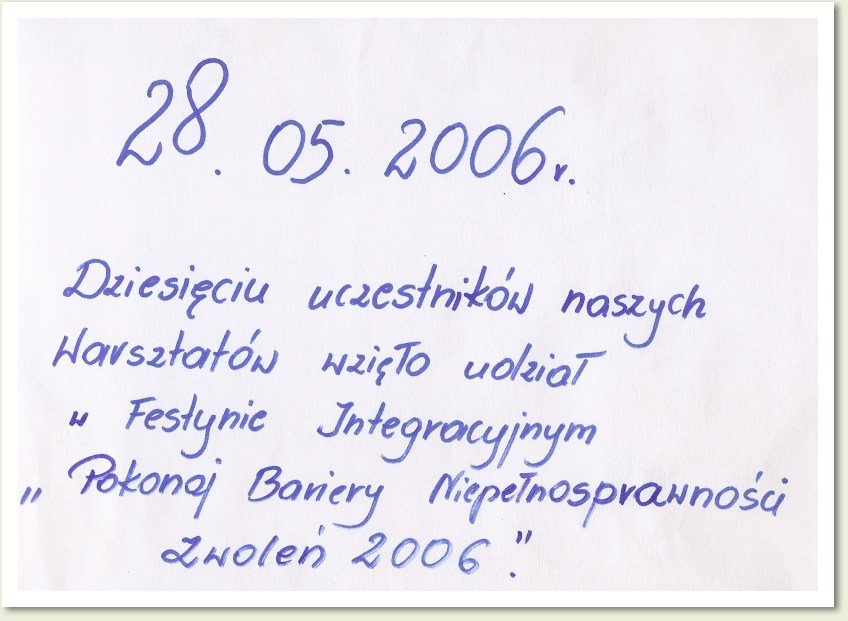 28. 05. 2006r.
Dziesięciu uczestników naszych
Warsztatów wzięło udział
w Festynie Integracyjnym
„Pokonaj Bariery Niepełnosprawności
Zwoleń 2006".